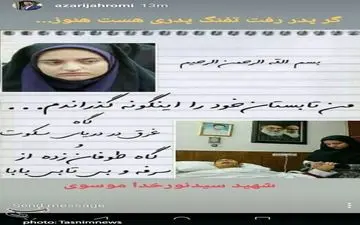 azarijahromi 13m
گر پدر رفت تفنگ پدری هست هنوز...
بسم الله الرحمن الرحیم
من تابستان خود را اینگونه گذراندم...
گاه
غرق در دریای سکوت
و
گاه طوفان‌زده از
سرفه و بی تابی بابا
شهید سیدنورخدا موسوی
Send message
photo: Tasnimnews